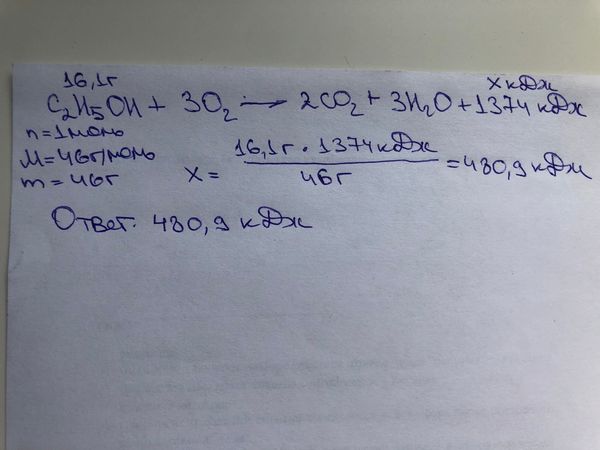 16,1г x кДж
C₂H₅OH + 3O₂ → 2CO₂ + 3H₂O + 1374 кДж
n = 1 моль
M = 46г/моль
m = 46г
x = 16,1г · 1374 кДж / 46г = 480,9 кДж
Ответ. 480,9 кДж